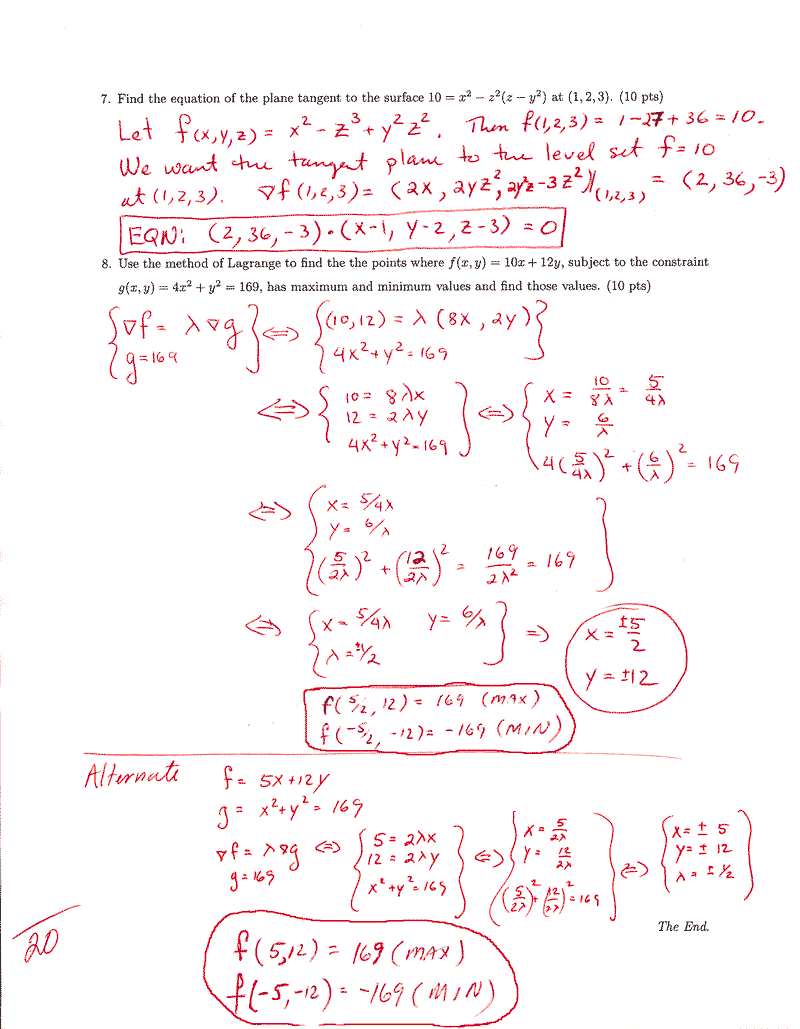 7. Find the equation of the plane tangent to the surface 10 = x² − z²(z − y²) at (1, 2, 3). (10 pts)
Let f(x,y,z) = x² − z³ + y²z². Then f(1,2,3) = 1−27+36 = 10.
We want the tangent plane to the level set f=10
at (1,2,3). ∇f(1,2,3) = (2x, 2yz², 2y²z−3z²)|(1,2,3) = (2, 36, −3)
EQN: (2, 36, −3)·(x−1, y−2, z−3) = 0
8. Use the method of Lagrange to find the the points where f(x, y) = 10x + 12y, subject to the constraint
g(x, y) = 4x² + y² = 169, has maximum and minimum values and find those values. (10 pts)
{∇f = λ∇g
g = 169} ⇔ {(10,12) = λ(8x, 2y)
4x²+y² = 169}
⇔ {10 = 8λx
12 = 2λy
4x²+y² = 169} ⇔ {x = 10/8λ = 5/4λ
y = 6/λ
4(5/4λ)² + (6/λ)² = 169
⇔ {x = 5/4λ
y = 6/λ
(5/2λ)² + (12/2λ)² = 169/2λ² = 169}
⇔ {x = 5/4λ y = 6/λ
λ = ±1/2} ⇒ x = ±5/2
y = ±12
f(5/2, 12) = 169 (MAX)
f(−5/2, −12) = −169 (MIN)
Alternate f = 5x+12y
g = x²+y² = 169
∇f = λ∇g
g = 169 ⇔ {5 = 2λx
12 = 2λy
x²+y² = 169} ⇔ {x = 5/2λ
y = 12/2λ
(5/2λ)² + (12/2λ)² = 169} ⇔ {x = ± 5
y = ± 12
λ = ± 1/2}
The End.
20
f(5,12) = 169 (MAX)
f(−5,−12) = −169 (MIN)